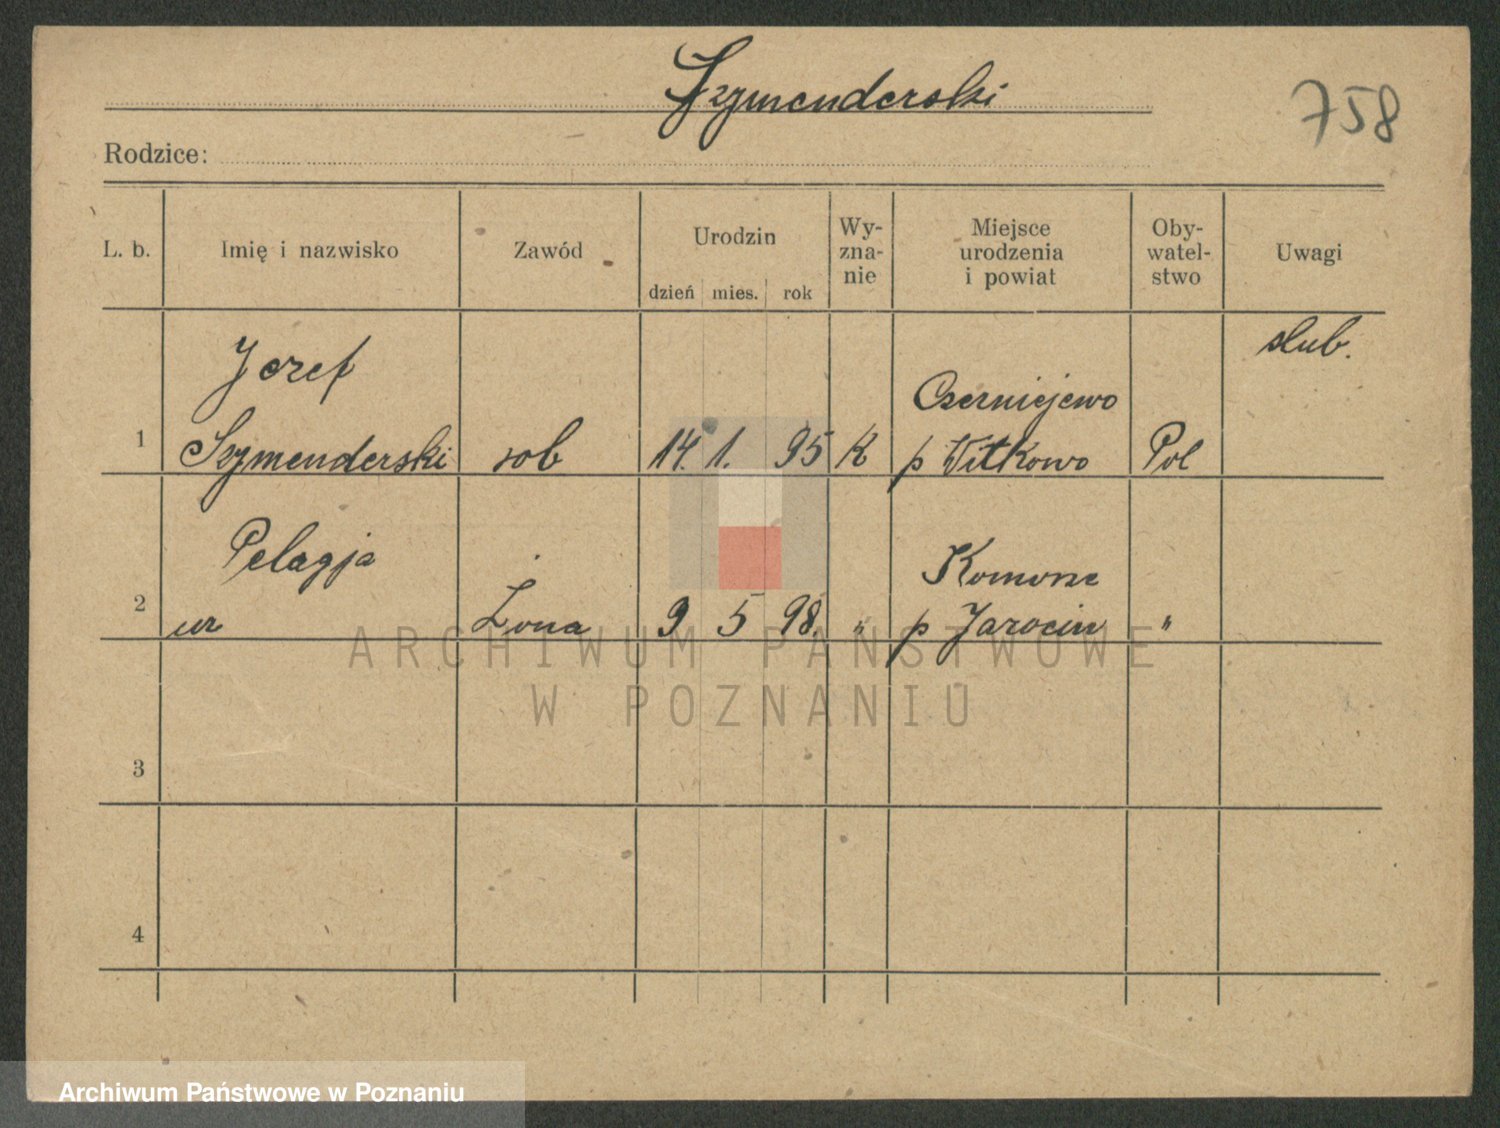 Szymenderski
758
Rodzice:
L. b.
Imię i nazwisko
Zawód
Urodzin
dzień mies. rok
Wy-
zna-
nie
Miejsce
urodzenia
i powiat
Oby-
watel-
stwo
Uwagi
1
Jozef
Szymenderski
rob
14. 1. 95
K
Czerniejewo
p Witkowo
Pol
slub.
2
Pelagja
ur
Żona
9 5 98.
"
Komorze
p Jarocin
"
3
4
ARCHIWUM PAŃSTWOWE
W POZNANIU
Archiwum Państwowe w Poznaniu